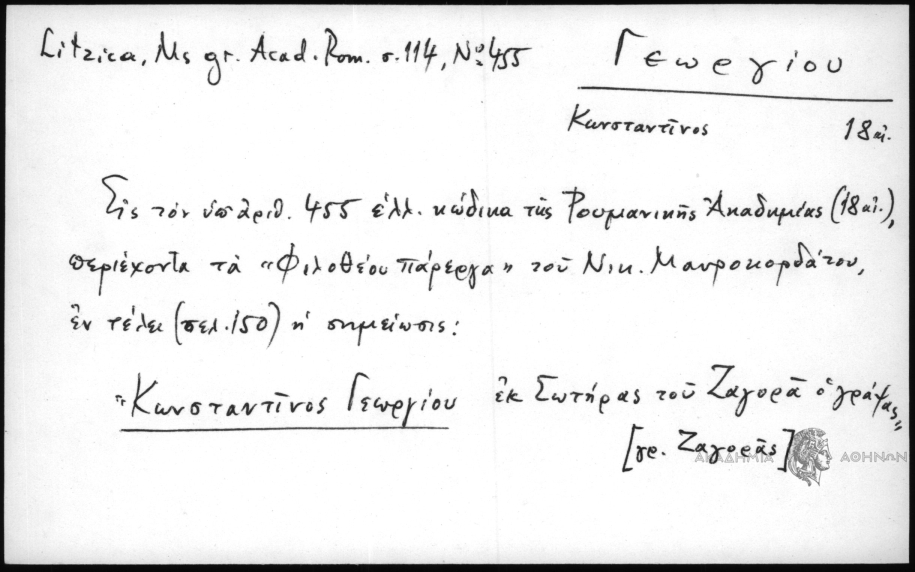 Litzica, Ms gr. Acad. Rom. σ. 114, Nº 455
Γεωργίου
Κωνσταντῖνος 18 αἰ.
Εἰς τὸν ὑπ' ἀριθ. 455 ἑλλ. κώδικα τῆς Ρουμανικῆς Ἀκαδημίας (18 αἰ.),
περιέχοντα τὰ «Φιλοθέου πάρεργα» τοῦ Νικ. Μαυροκορδάτου,
ἐν τέλει (σελ. 150) ἡ σημείωσις:
"Κωνσταντῖνος Γεωργίου ἐκ Σωτήρας τοῦ Ζαγορᾶ ὁ γράψας"
[γρ. Ζαγορᾶς]
ΑΚΑΔΗΜΙΑ ΑΘΗΝΩΝ